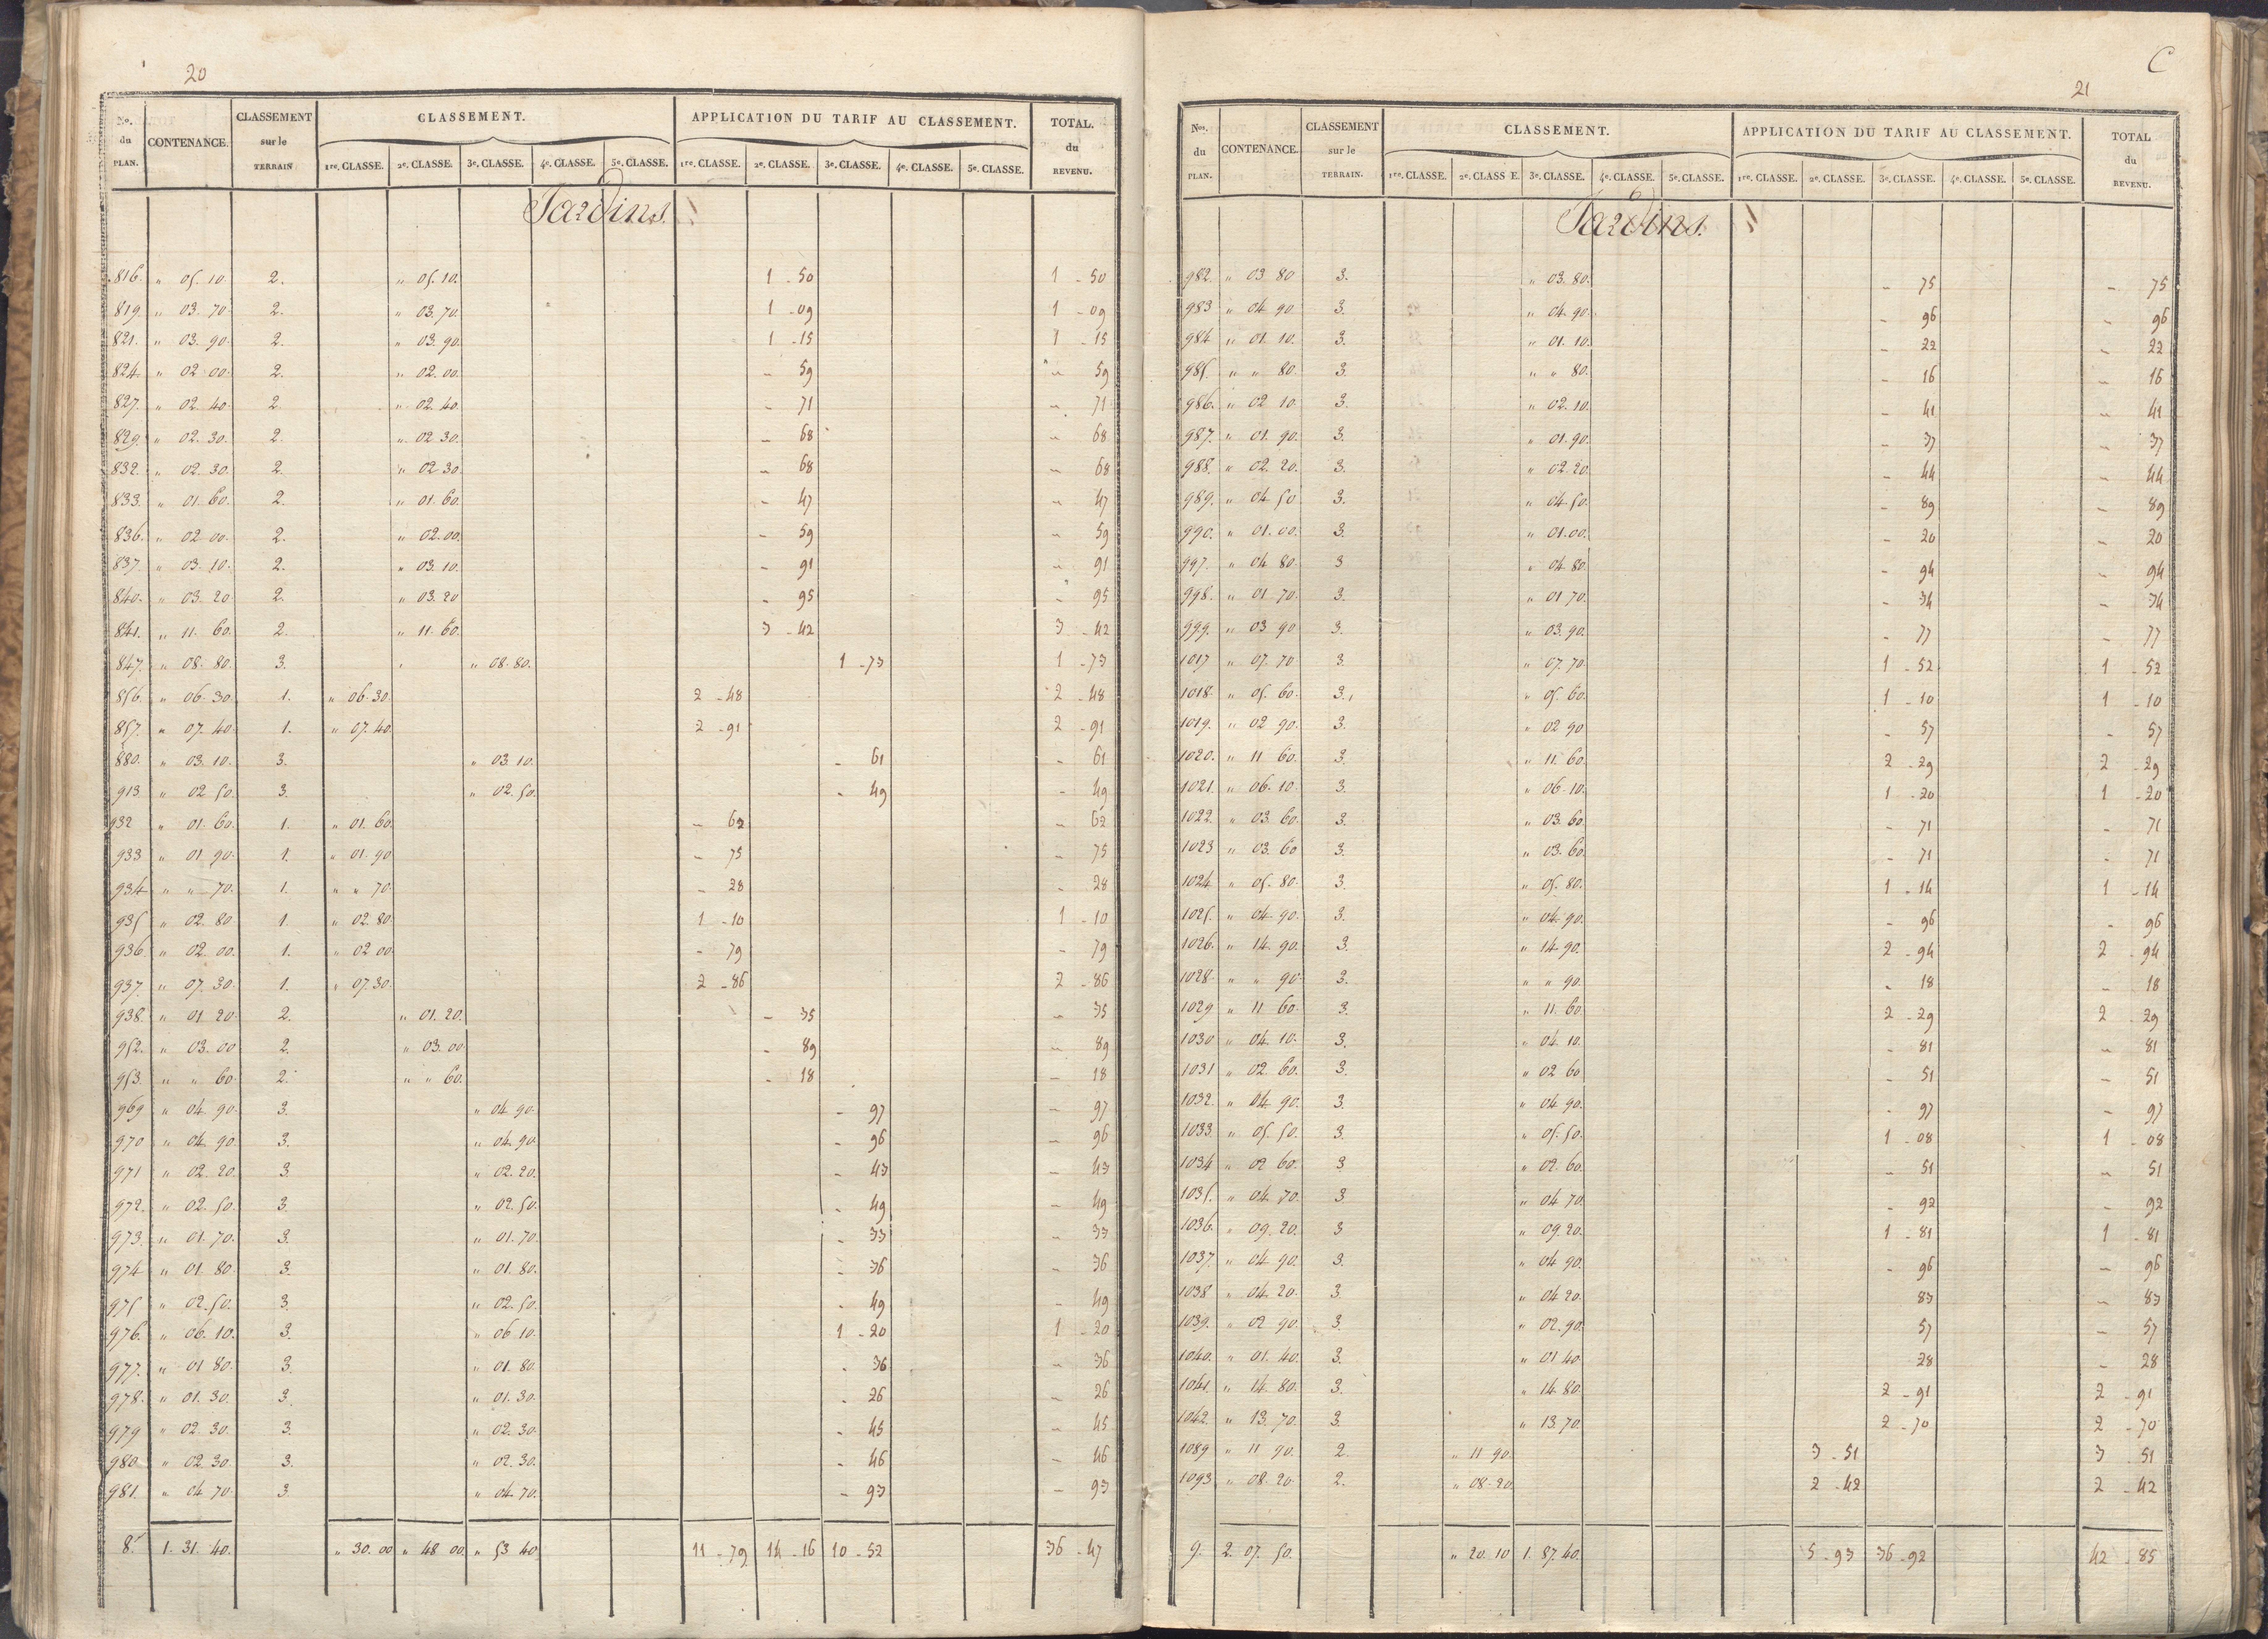 20
No. du PLAN. CONTENANCE. CLASSEMENT sur le TERRAIN CLASSEMENT. APPLICATION DU TARIF AU CLASSEMENT. TOTAL. du REVENU.
1re. CLASSE. 2e. CLASSE. 3e. CLASSE. 4e. CLASSE. 5e. CLASSE. 1re. CLASSE. 2e. CLASSE. 3e. CLASSE. 4e. CLASSE. 5e. CLASSE.
Jardins.
816. " 05. 10. 2. " 05. 10. 1 - 50 1 - 50
819. " 03. 70. 2. " 03. 70. 1 - 09 1 - 09
821. " 03. 90. 2. " 03. 90. 1 - 15 1 - 15
824. " 02. 00. 2. " 02. 00. - 59 - 59
827. " 02. 40. 2. " 02. 40. - 71 - 71
829. " 02. 30. 2. " 02. 30. - 68 - 68
832. " 02. 30. 2. " 02 30. - 68 - 68
833. " 01. 60. 2. " 01. 60. - 47 - 47
836. " 02. 00. 2. " 02. 00. - 59 - 59
837. " 03. 10. 2. " 03. 10. - 91 - 91
840. " 03. 20 2. " 03. 20 - 95 - 95
841. " 11. 60. 2. " 11. 60. 3 - 42 3 - 42
847. " 08. 80. 3. " 08. 80. 1 - 73 1 - 73
856. " 06. 30. 1. " 06. 30. 2 - 48 2 - 48
857. " 07. 40. 1. " 07. 40. 2 - 91 2 - 91
880. " 03. 10. 3. " 03 10. - 61 - 61
913. " 02 50. 3. " 02. 50. - 49 - 49
932 " 01. 60. 1. " 01. 60. - 62 - 62
933 " 01 90. 1. " 01. 90 - 75 - 75
934 " " 70. 1. " " 70. - 28 - 28
935 " 02. 80. 1. " 02. 80. 1 - 10 1 - 10
936. " 02. 00. 1. " 02 00. - 79 - 79
937. " 07. 30. 1. " 07. 30. 2 - 86 2 - 86
938. " 01. 20. 2. " 01. 20. - 35 - 35
952. " 03. 00 2. " 03. 00. - 89 - 89
953. " " 60. 2. " " 60. - 18 - 18
969 " 04. 90. 3. " 04. 90. - 97 - 97
970 " 04. 90. 3. " 04. 90. - 96 - 96
971 " 02. 20. 3. " 02. 20. - 43 - 43
972. " 02. 50. 3. " 02. 50. - 49 - 49
973. " 01. 70. 3. " 01. 70. - 33 - 33
974 " 01. 80. 3. " 01. 80. - 36 - 36
975 " 02. 50. 3. " 02. 50. - 49 - 49
976. " 06. 10. 3. " 06 10. 1 - 20 1 - 20
977. " 01 80. 3. " 01. 80. - 36 - 36
978. " 01. 30. 3. " 01. 30. - 26 - 26
979 " 02. 30. 3. " 02. 30. - 45 - 45
980. " 02. 30. 3. " 02. 30. - 46 - 46
981. " 04. 70. 3. " 04. 70. - 93 - 93
8. 1. 31. 40. " 30. 00 " 48 00. " 53 40 11 - 79 14 - 16 10 - 52 36 - 47
C
21
Nos. du PLAN. CONTENANCE. CLASSEMENT sur le TERRAIN. CLASSEMENT. APPLICATION DU TARIF AU CLASSEMENT. TOTAL du REVENU.
1re. CLASSE. 2e. CLASSE. 3e. CLASSE. 4e. CLASSE. 5e. CLASSE. 1re. CLASSE. 2e. CLASSE. 3e. CLASSE. 4e. CLASSE. 5e. CLASSE.
Jardins.
982. " 03 80 3. " 03. 80. - 75 - 75
983 " 04 90. 3. " 04. 90. - 96 - 96
984 " 01. 10. 3. " 01. 10. - 22 - 22
985. " " 80. 3. " " 80. - 16 - 16
986. " 02 10. 3. " 02. 10. - 41 - 41
987. " 01. 90. 3. " 01. 90. - 37 - 37
988. " 02. 20. 3. " 02. 20. - 44 - 44
989. " 04 50 3. " 04. 50. - 89 - 89
990. " 01. 00. 3. " 01. 00. - 20 - 20
997. " 04 80. 3 " 04. 80. - 94 - 94
998. " 01 70. 3. " 01 70. - 34 - 34
999. " 03 90 3. " 03. 90. - 77 - 77
1017 " 07. 70. 3. " 07. 70. 1 - 52 1 - 52
1018. " 05. 60. 3. " 05. 60. 1 - 10 1 - 10
1019. " 02 90. 3. " 02 90 - 57 - 57
1020. " 11 60. 3. " 11. 60. 2 - 29 2 - 29
1021. " 06. 10. 3. " 06. 10. 1 - 20 1 - 20
1022. " 03. 60. 3. " 03. 60. - 71 - 71
1023 " 03. 60 3. " 03. 60. - 71 - 71
1024 " 05. 80. 3. " 05. 80. 1 - 14 1 - 14
1025. " 04. 90. 3. " 04. 90. - 96 - 96
1026. " 14. 90. 3. " 14. 90. 2 - 94 2 - 94
1028. " " 90. 3. " " 90. - 18 - 18
1029 " 11 60. 3. " 11. 60. 2 - 29 2 - 29
1030 " 04. 10. 3. " 04. 10. - 81 - 81
1031 " 02 60. 3. " 02 60 - 51 - 51
1032. " 04 90. 3. " 04 90. - 97 - 97
1033. " 05. 50. 3. " 05. 50. 1 - 08 1 - 08
1034 " 02 60. 3 " 02. 60. - 51 - 51
1035. " 04. 70. 3 " 04. 70. - 92 - 92
1036. " 09. 20. 3 " 09. 20. 1 - 81 1 - 81
1037. " 04 90. 3. " 04 90. - 96 - 96
1038 " 04. 20. 3 " 04 20. 83 - 83
1039. " 02 90. 3. " 02. 90. 57 - 57
1040. " 01. 40. 3. " 01 40. 28 - 28
1041. " 14. 80. 3. " 14. 80. 2 - 91 2 - 91
1042. " 13. 70. 3. " 13. 70. 2 - 70 2 - 70
1089 " 11 90. 2 " 11 90. 3 - 51 3 51
1093 " 08. 20. 2. " 08. 20. 2 - 42 2 - 42
9. 2. 07. 50. " 20. 10 1. 87. 40. 5 - 93 36 - 92 42 - 85